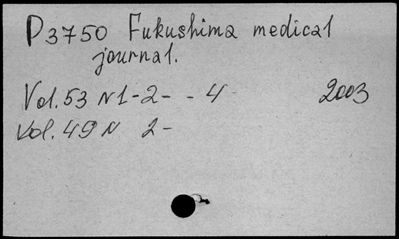 P3750 Fukushima medical
journal.
Vol.53 N1-2- - 4 2003
Vol.49 N 2-